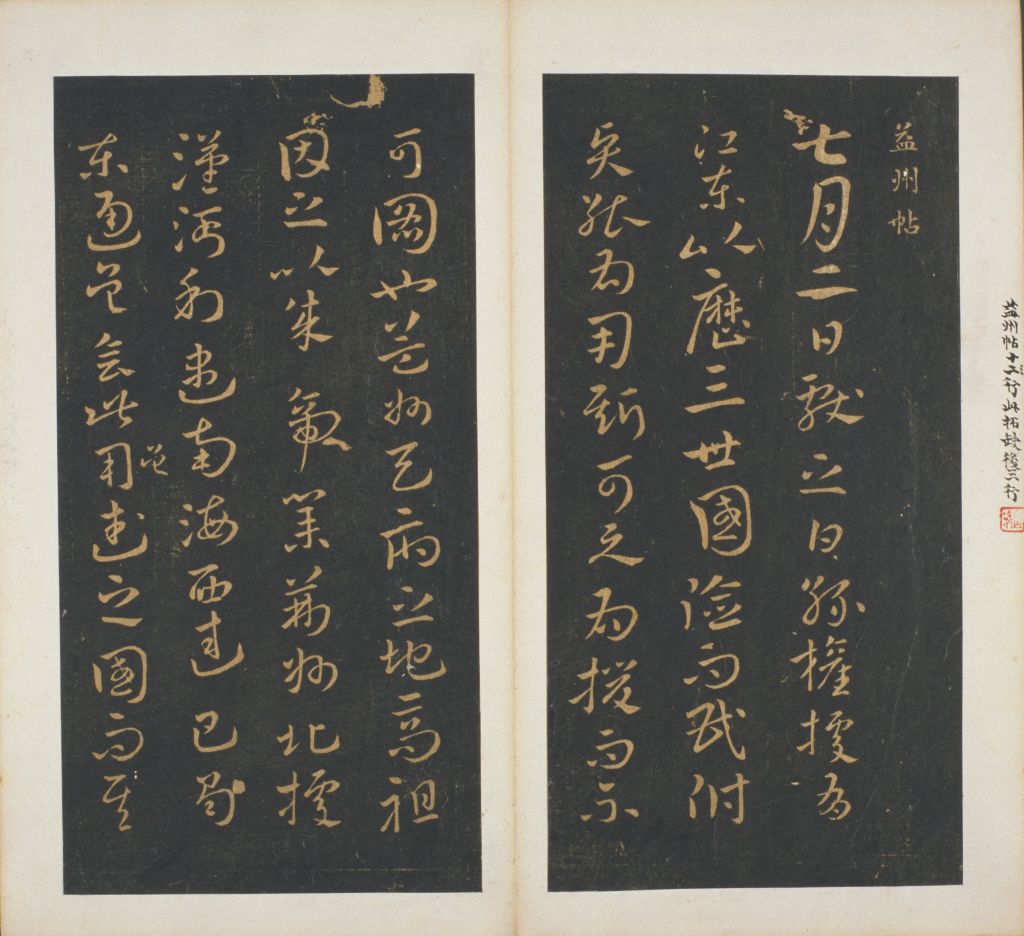 益州帖十行此拓缺後三行
益州帖
七月二日獻之白孫權據有
江東以歷三世國險而民附
能為用斯可與為援而不
可圖也益州天府之地高祖
因之以成帝業荊州北據
漢沔利盡南海西連巴蜀
東通吳會此用武之國而其